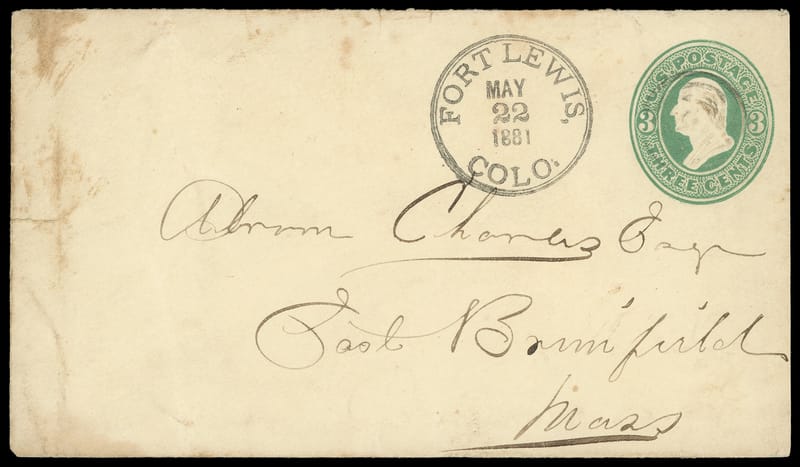 FORT LEWIS,
MAY
22
1881
COLO.
U.S. POSTAGE
3 3
THREE CENTS
Abrom Charles Esqr
East Brimfield
Mass